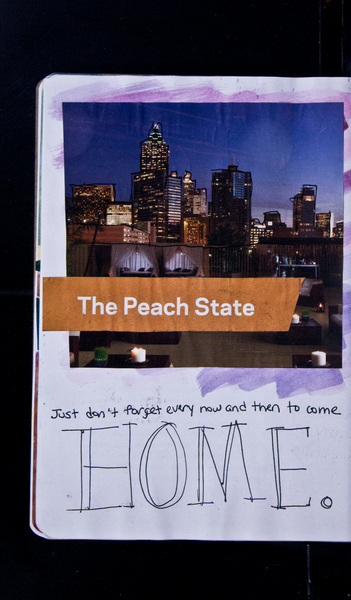 The Peach State
Just don't forget every now and then to come
HOME.